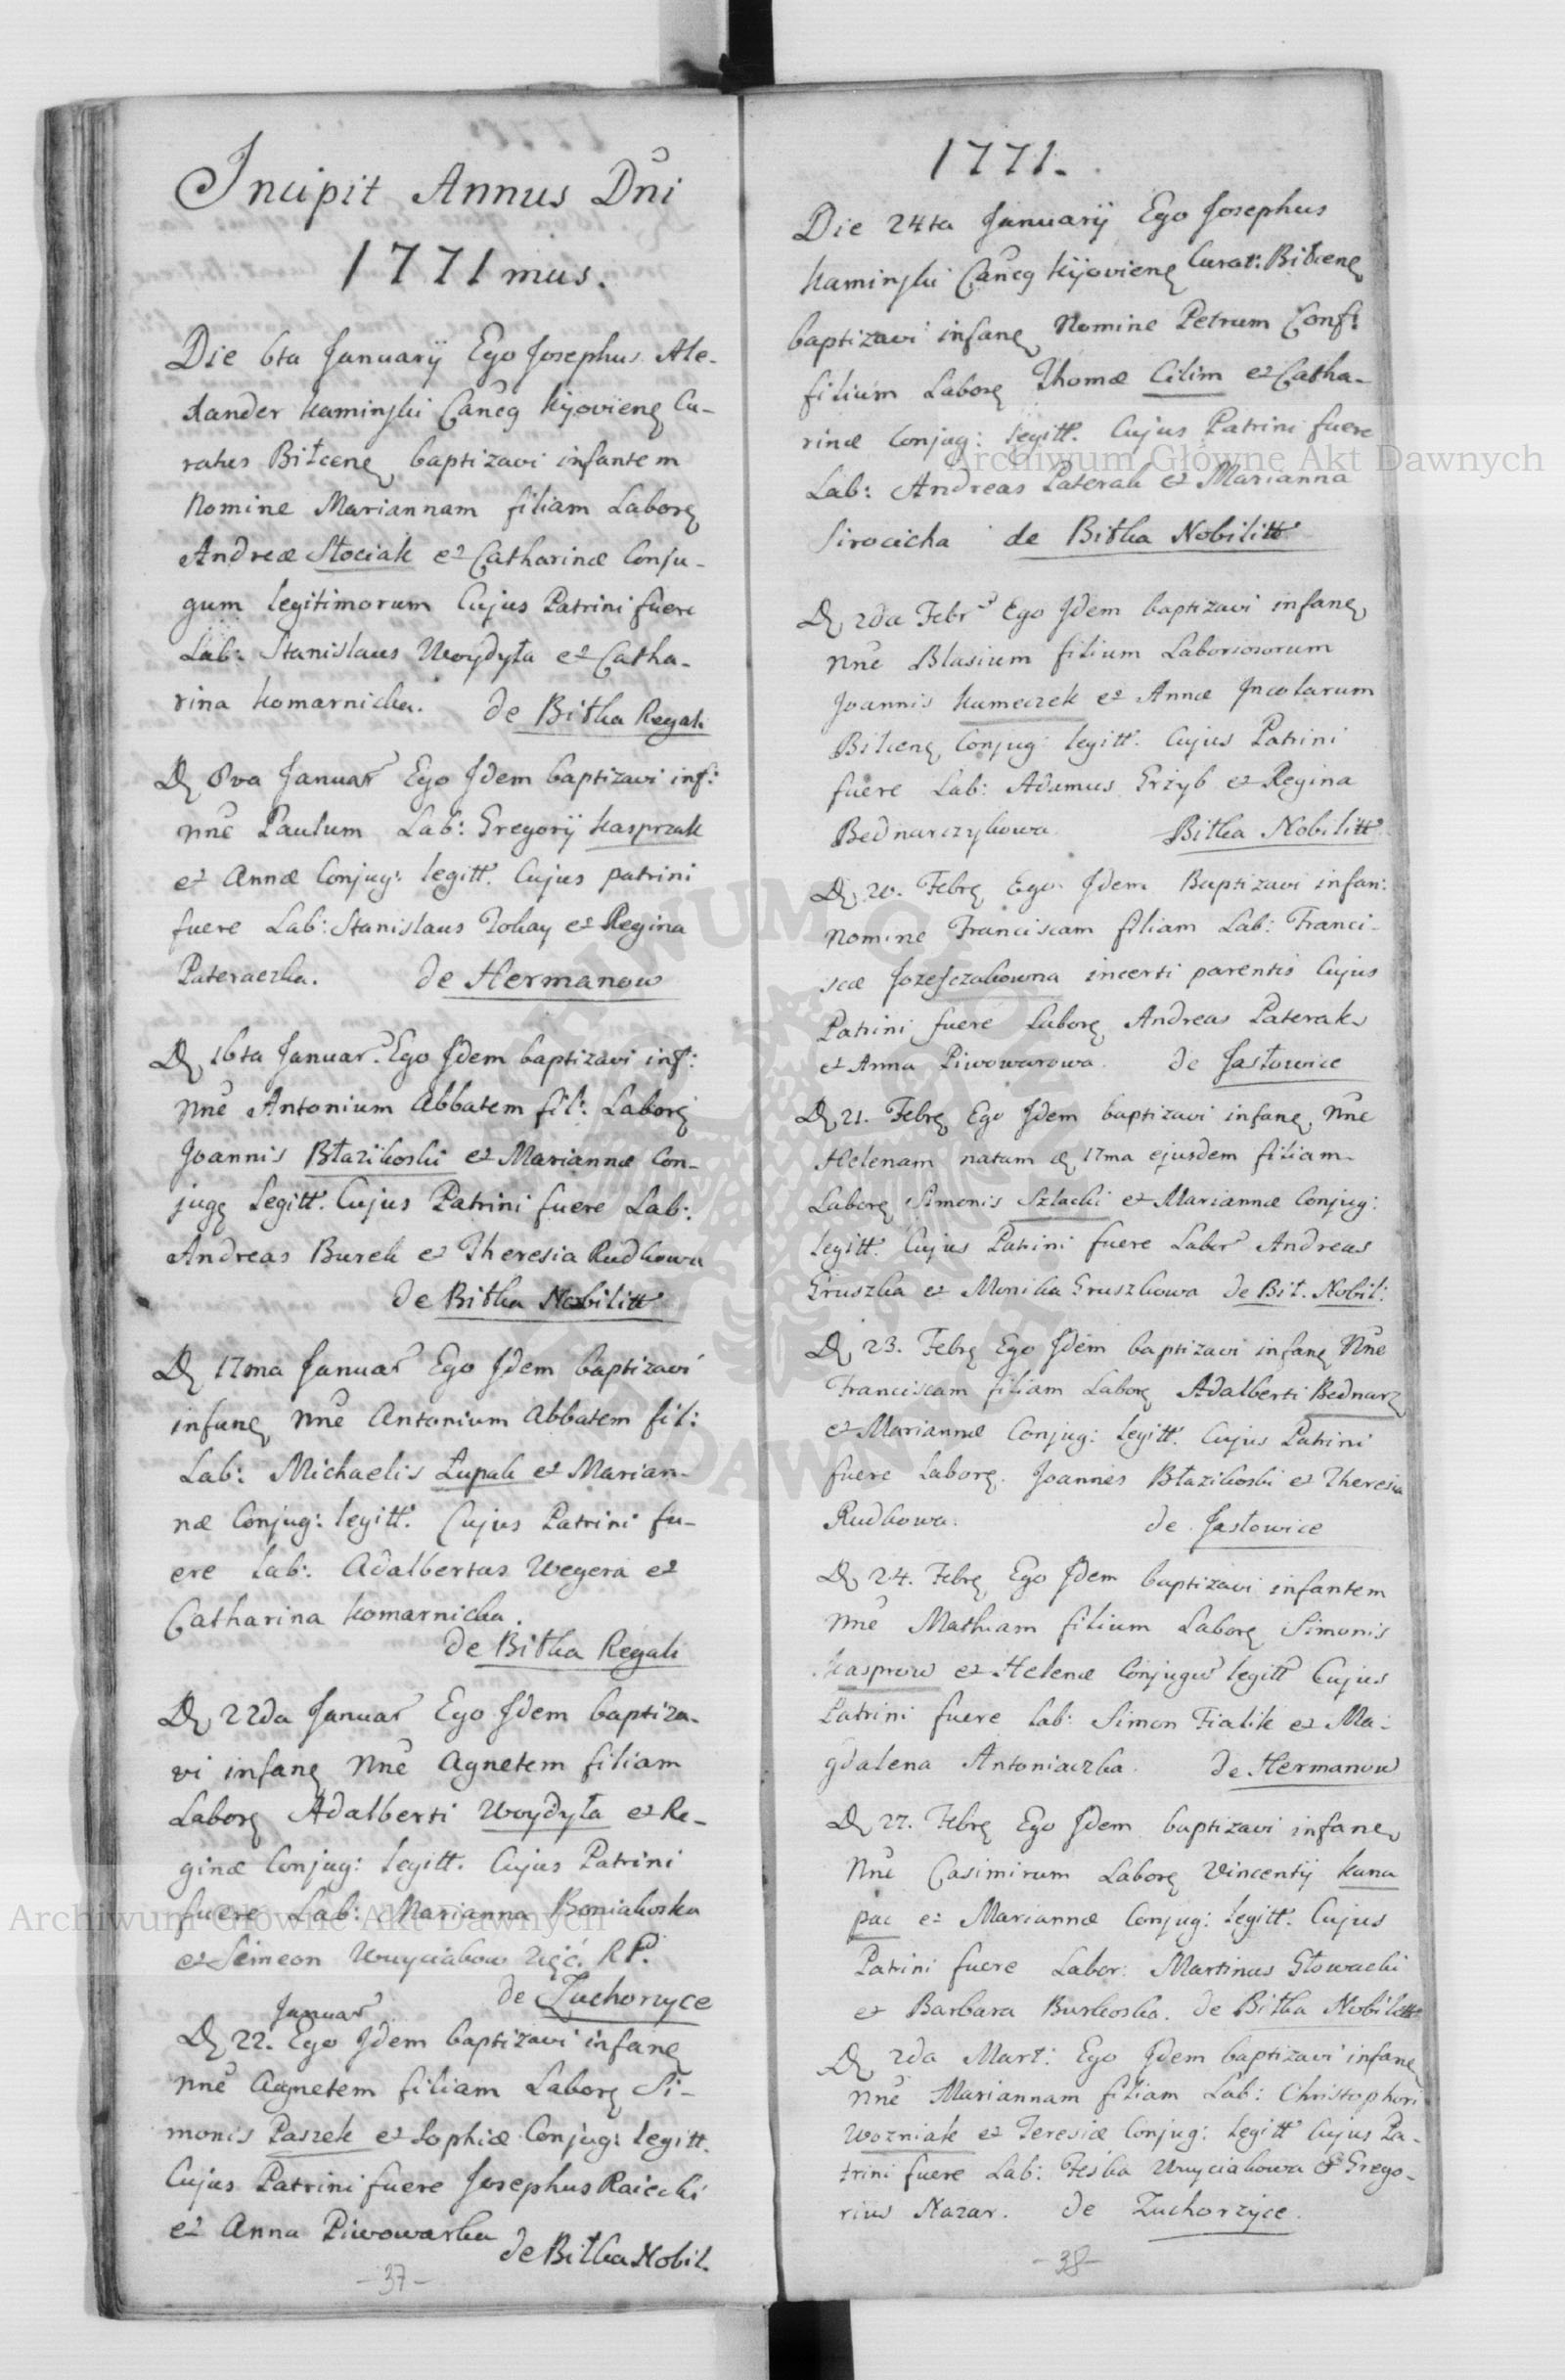 Incipit Annus Dni
1771mus.
Die 6ta Januarij Ego Josephus Ale-
xander Kaminski Cancq Kijovienq Cu-
ratus Biłcenq baptizavi infantem
Nomine Mariannam filiam Laborq
Andreæ Słociak et Catharinæ Conju-
gum legitimorum Cujus Patrini fuere
Lab: Stanislaus Woydyła et Catha-
rina Komarnicka. de Bitka Regali
D 8va Januar Ego Idem baptizavi inf:
nne Paulum Lab: Gregorij Kasprzak
et Annæ Conjug: legitt. Cujus patrini
fuere Lab: Stanislaus Tokay et Regina
Pateraczka. de Hermanow
D 16ta Januar. Ego Idem baptizavi inf:
nne Antonium Abbatem fil: Laborq
Joannis Błazikoski et Mariannæ Con-
jugq legitt. Cujus Patrini fuere Lab:
Andreas Burek et Theresia Rudkowa
de Bitka Nobilitt
D 17ma Januar Ego Idem baptizavi
infanq nne Antonium Abbatem fil:
Lab: Michaelis Łupak et Marian-
næ Conjug: legitt. Cujus Patrini fu-
ere Lab: Adalbertus Wegera et
Catharina Komarnicka.
de Bitka Regali
D 22da Januar Ego Idem baptiza-
vi infanq nne Agnetem filiam
Laborq Adalberti Woydyła et Re-
ginæ Conjug: legitt. Cujus Patrini
fuere Lab: Marianna Boniakoska
et Simeon Woyciakow zięć. R P.
de Zuchorzyce
Januar
D 22. Ego Idem baptizavi infanq
nne Agnetem filiam Laborq Si-
monis Paszek et Sophiæ Conjug: legitt.
Cujus Patrini fuere Josephus Raiecki
et Anna Piwowarka de Bitka Nobil.
-37-
1771.
Die 24ta Januarij Ego Josephus
Kaminski Cancq Kijovienq Curat: Bitcenq
baptizavi infanq Nomine Petrum Conf:
filium Laborq Thomæ Cilim et Catha-
rinæ Conjug: legitt. Cujus Patrini fuere
Lab: Andreas Paterak et Marianna
Sirocicha de Bitka Nobilitt
D 2da Febr Ego Idem baptizavi infanq
nne Blasium filium Laboriosorum
Joannis Kameczek et Annæ Incolarum
Bitcenq Conjug: legitt. Cujus Patrini
fuere Lab: Adamus Grzyb et Regina
Bednarczykowa. Bitka Nobilitt
D 20. Febrq Ego Idem Baptizavi infan:
Nomine Franciscam filiam Lab: Franci-
scæ Jozefczakowna incerti parentis Cujus
Patrini fuere Laborq Andreas Paterak
et Anna Piwowarowa. de Jastowice
D 21. Febrq Ego Idem baptizavi infanq nne
Helenam natam D 17ma ejusdem filiam
Laborq Simonis Szlacki et Mariannæ Conjug:
legitt. Cujus Patrini fuere Labor Andreas
Gruszka et Monika Gruszkowa de Bit. Nobil:
D 23. Febrq Ego Idem baptizavi infanq Nne
Franciscam filiam Laborq Adalberti Bednarz
et Mariannæ Conjug: legitt. Cujus Patrini
fuere Laborq. Joannes Błazikoski et Theresia
Rudkowa. de Jastowice
D 24. Febrq Ego Idem baptizavi infantem
nne Mathiam filium Laborq Simonis
Kasprow et Helenæ Conjugu legitt Cujus
Patrini fuere Lab: Simon Fialik et Ma-
gdalena Antoniaczka. de Hermanow
D 27. Febrq Ego Idem baptizavi infanq
Nne Casimirum Laborq Vincentij Kana
pac et Mariannæ Conjug: legitt. Cujus
Patrini fuere Labor: Martinus Głowacki
et Barbara Burkoska. de Bitka Nobilitt
D 2da Mart: Ego Idem baptizavi infanq
nne Mariannam filiam Lab: Christophori
Wozniak et Teresiæ Conjug: legitt Cujus Pa-
trini fuere Lab: Feska Woyciakowa et Grego-
rius Nazar. de Zuchorzyce.
-38-
Archiwum Główne Akt Dawnych
Archiwum Główne Akt Dawnych